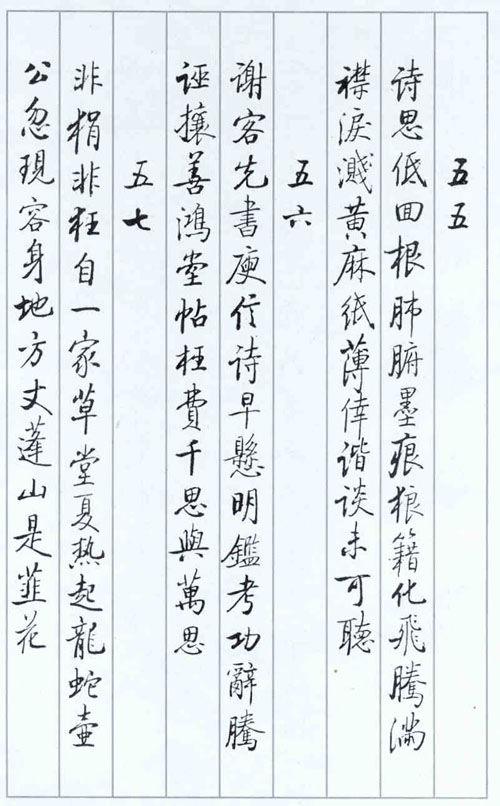 五五
诗思低回根肺腑墨痕狼籍化飛騰滿
襟淚濺黄麻紙薄倖谐谈未可聴
五六
谢客先書庾信诗早懸明鑑考功辭騰
誣攘善鴻堂帖枉費千思與萬思
五七
非狷非狂自一家草堂夏热起龍蛇壺
公忽現容身地方丈蓬山是韮花